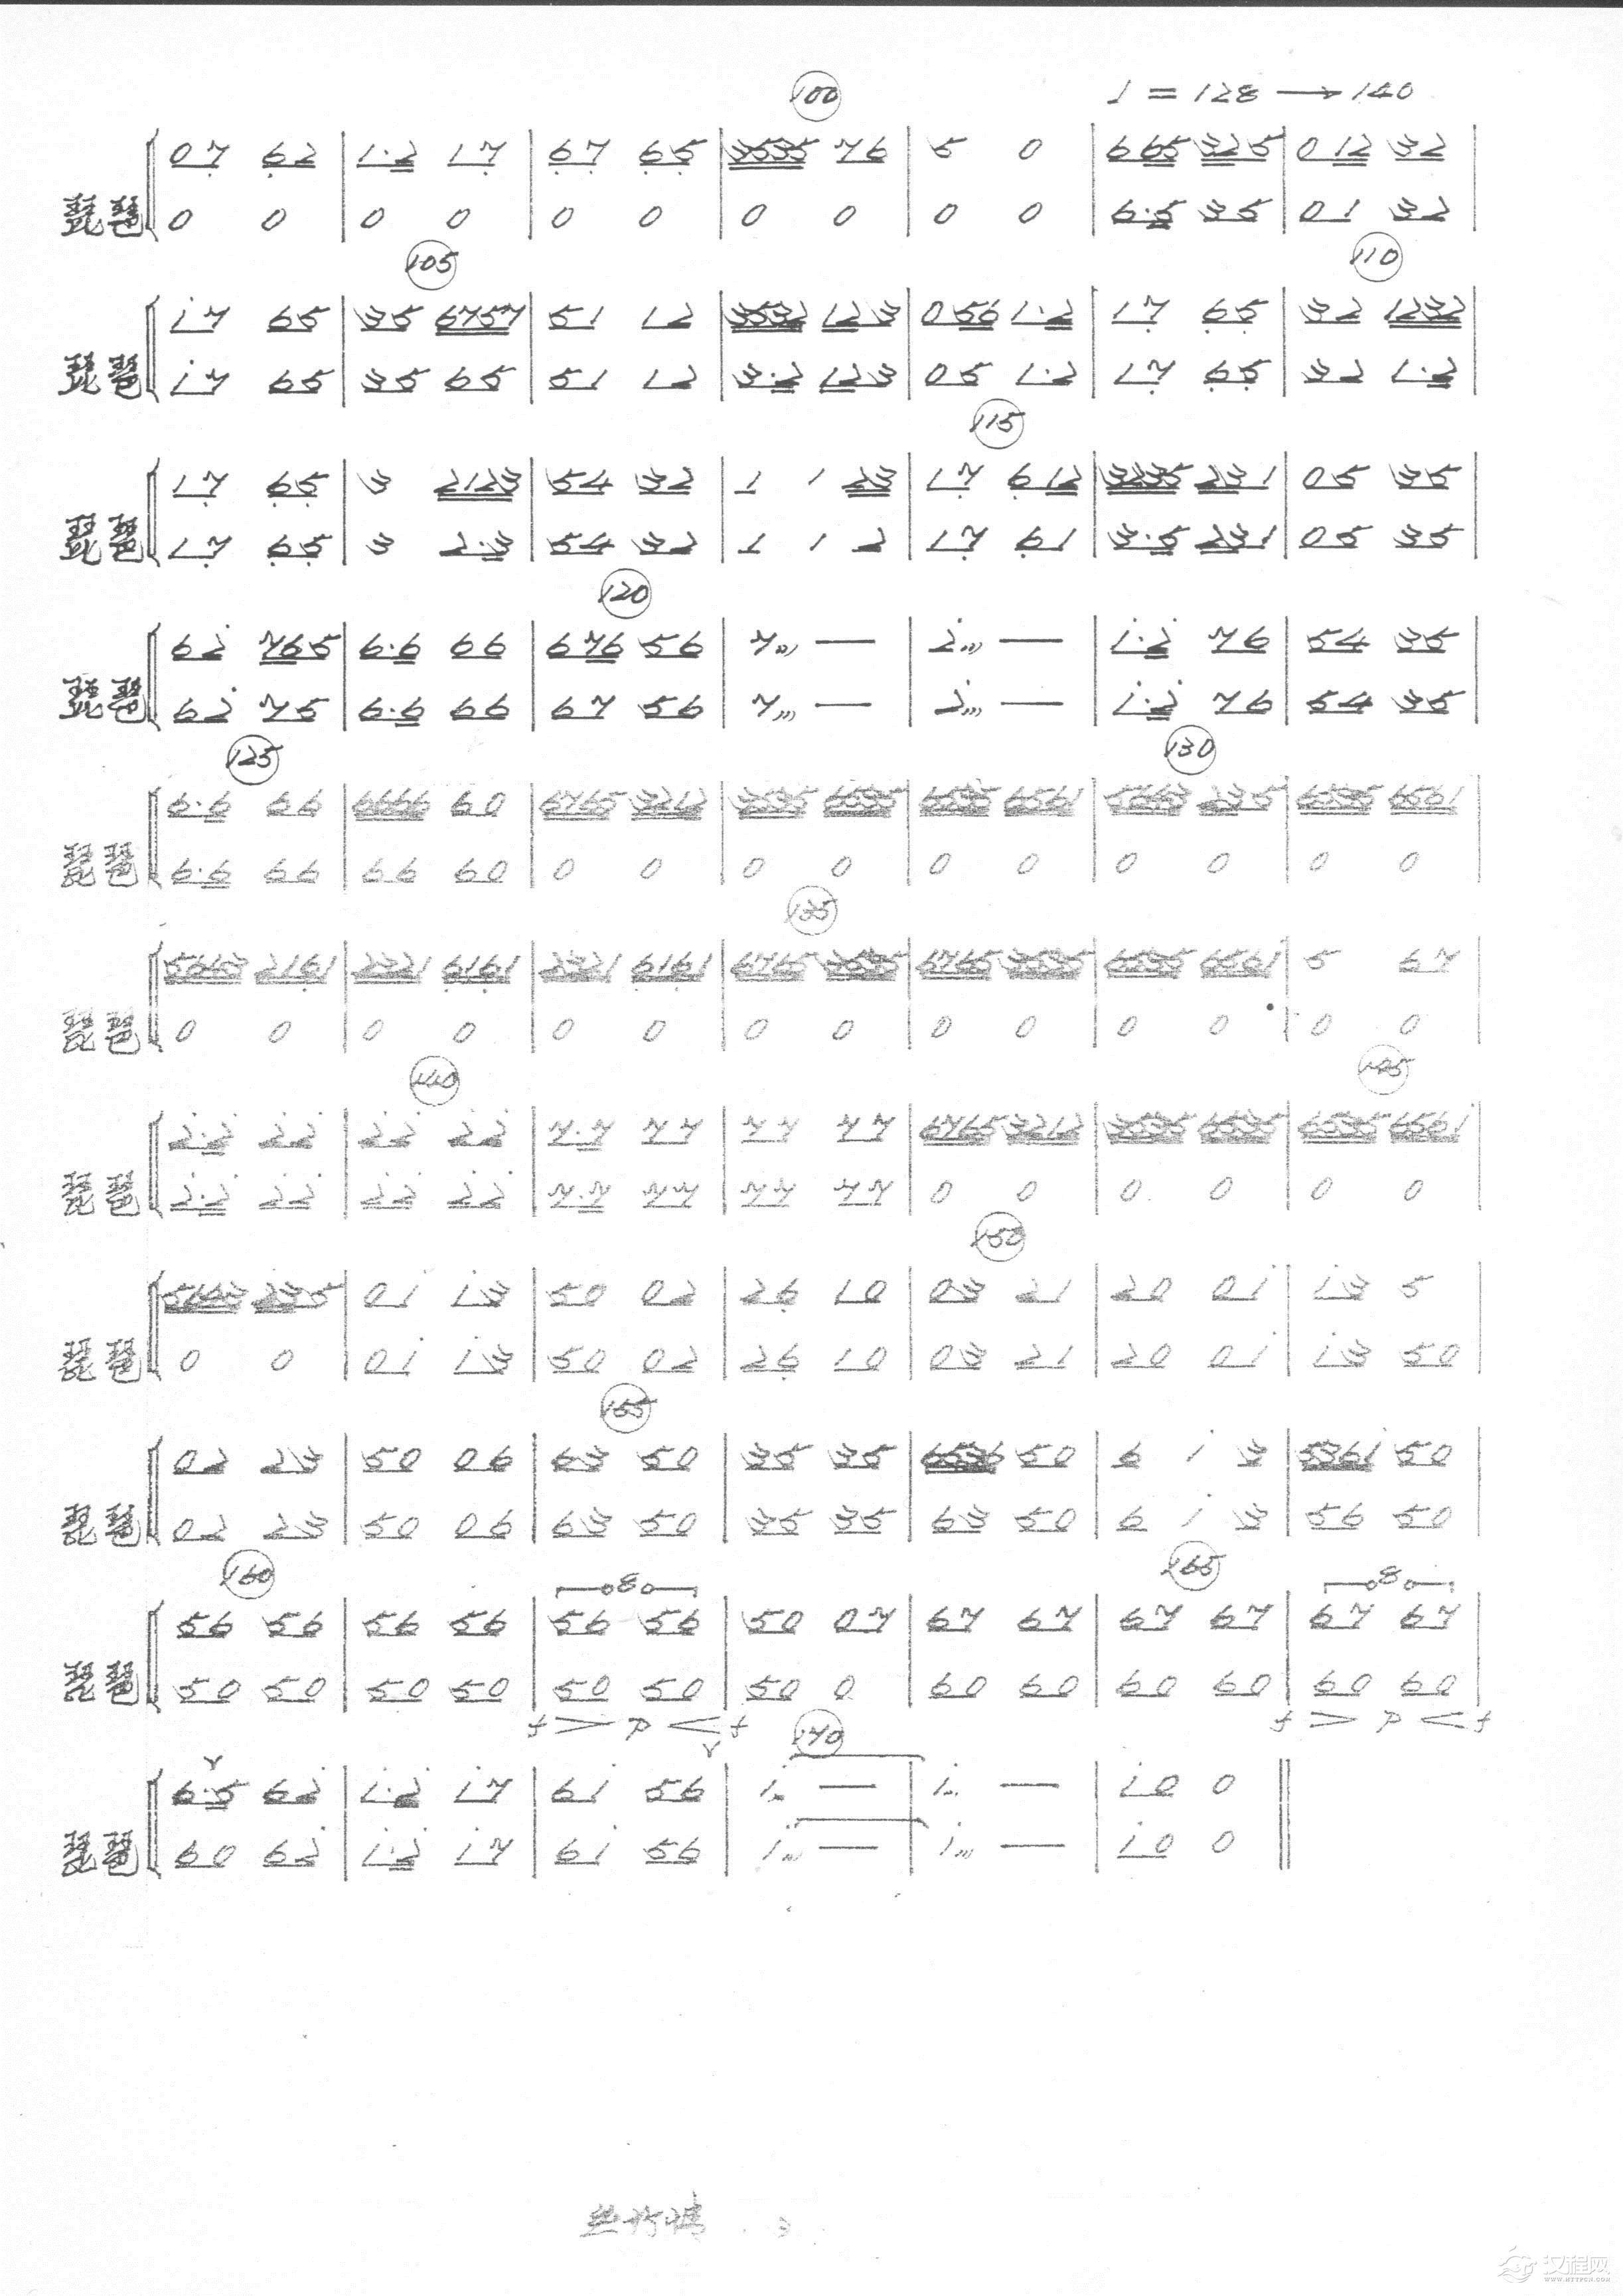 100 ♩=128→140
07 62 | 1·2 17 | 67 65 | 3535 76 | 5 0 | 665 325 | 012 32
琵琶 0 0 | 0 0 | 0 0 | 0 0 | 0 0 | 6·5 35 | 01 32
105 110
i7 65 | 35 6757 | 51 12 | 3532 123 | 056 1·2 | 17 65 | 32 1232
琵琶 i7 65 | 35 65 | 51 12 | 3·2 123 | 05 1·2 | 17 65 | 32 1·2
115
17 65 | 3 2123 | 54 32 | 1 1 23 | 17 612 | 3235 231 | 05 35
琵琶 17 65 | 3 2·3 | 54 32 | 1 1 2 | 17 61 | 3·5 231 | 05 35
120
62̇ 765 | 6·6 66 | 676 56 | 7 — | 2̇ — | i·2̇ 76 | 54 35
琵琶 62̇ 75 | 6·6 66 | 67 56 | 7 — | 2̇ — | i·2̇ 76 | 54 35
125 130
6·6 66 | 6666 60 | 6765 3212 | 3535 6535 | 6535 6561 | 5643 235 | 6535 6561
琵琶 6·6 66 | 66 60 | 0 0 | 0 0 | 0 0 | 0 0 | 0 0
135
5643 2161 | 2321 6161 | 2321 6161 | 6765 3535 | 6765 3535 | 6535 6561 | 5 67
琵琶 0 0 | 0 0 | 0 0 | 0 0 | 0 0 | 0 0 | 0 0
140 145
2̇·2̇ 2̇2̇ | 2̇2̇ 2̇2̇ | 7·7 77 | 77 77 | 6765 3212 | 3535 6535 | 6535 656i
琵琶 2̇·2̇ 2̇2̇ | 2̇2̇ 2̇2̇ | 7·7 77 | 77 77 | 0 0 | 0 0 | 0 0
150
5643 235 | 0i i3 | 50 02 | 26 10 | 03 21 | 20 0i | i3 5
琵琶 0 0 | 0i i3 | 50 02 | 26 10 | 03 21 | 20 0i | i3 50
155
02 23 | 50 06 | 63 50 | 35 35 | 6536 50 | 6 1 3 | 536i 50
琵琶 02 23 | 50 06 | 63 50 | 35 35 | 63 50 | 6 1 3 | 56 50
160 8 165 8
56 56 | 56 56 | 56 56 | 50 07 | 67 67 | 67 67 | 67 67
琵琶 50 50 | 50 50 | 50 50 | 50 0 | 60 60 | 60 60 | 60 60
f > p < f 170 f > p < f
6·5 62̇ | i·2̇ i7 | 6i 56 | i — | i — | i0 0
琵琶 60 62̇ | i·2̇ i7 | 6i 56 | i — | i — | i0 0
丝竹情 3
汉程网
WWW.HTTPCN.COM